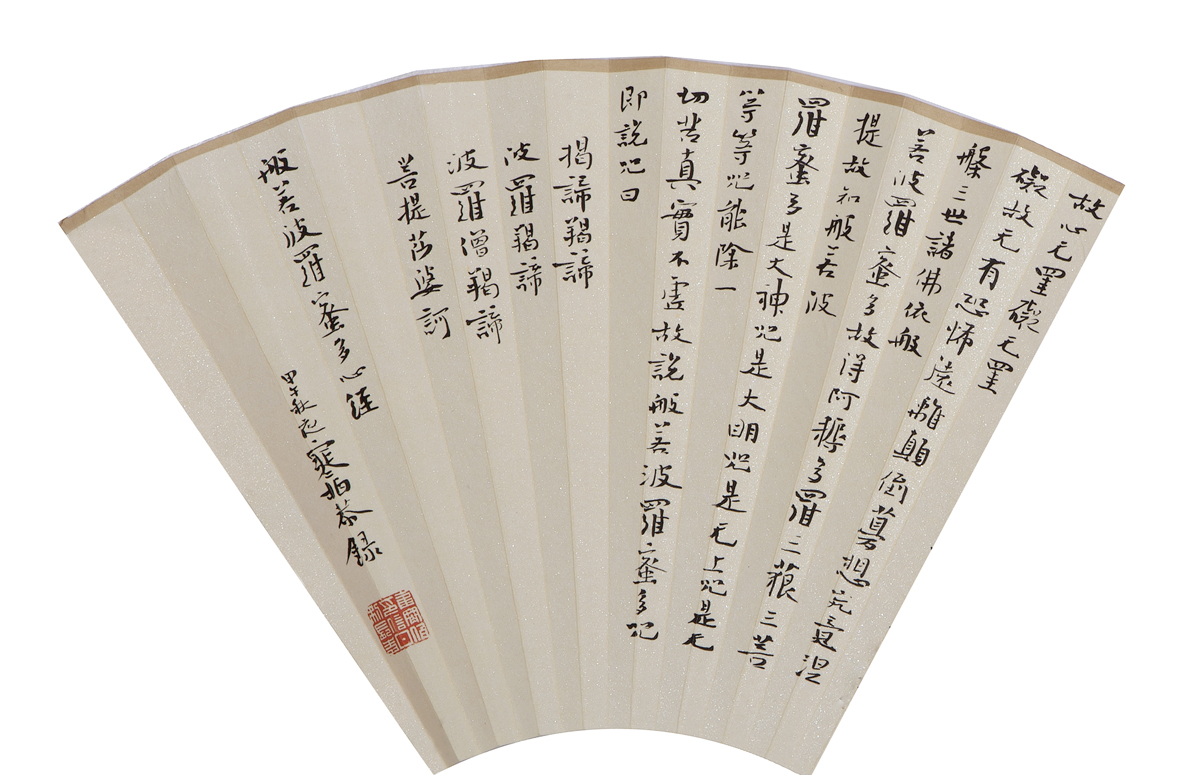 故心无罣礙无罣
礙故无有恐怖遠離顛倒夢想究竟涅
槃三世諸佛依般
若波羅蜜多故得阿耨多羅三藐三菩
提故知般若波
羅蜜多是大神咒是大明咒是无上咒是无
等等咒能除一
切苦真實不虛故說般若波羅蜜多咒
即說咒曰
揭諦羯諦
波羅羯諦
波羅僧羯諦
菩提莎婆訶
般若波羅蜜多心經
甲午秋 寒柏恭錄